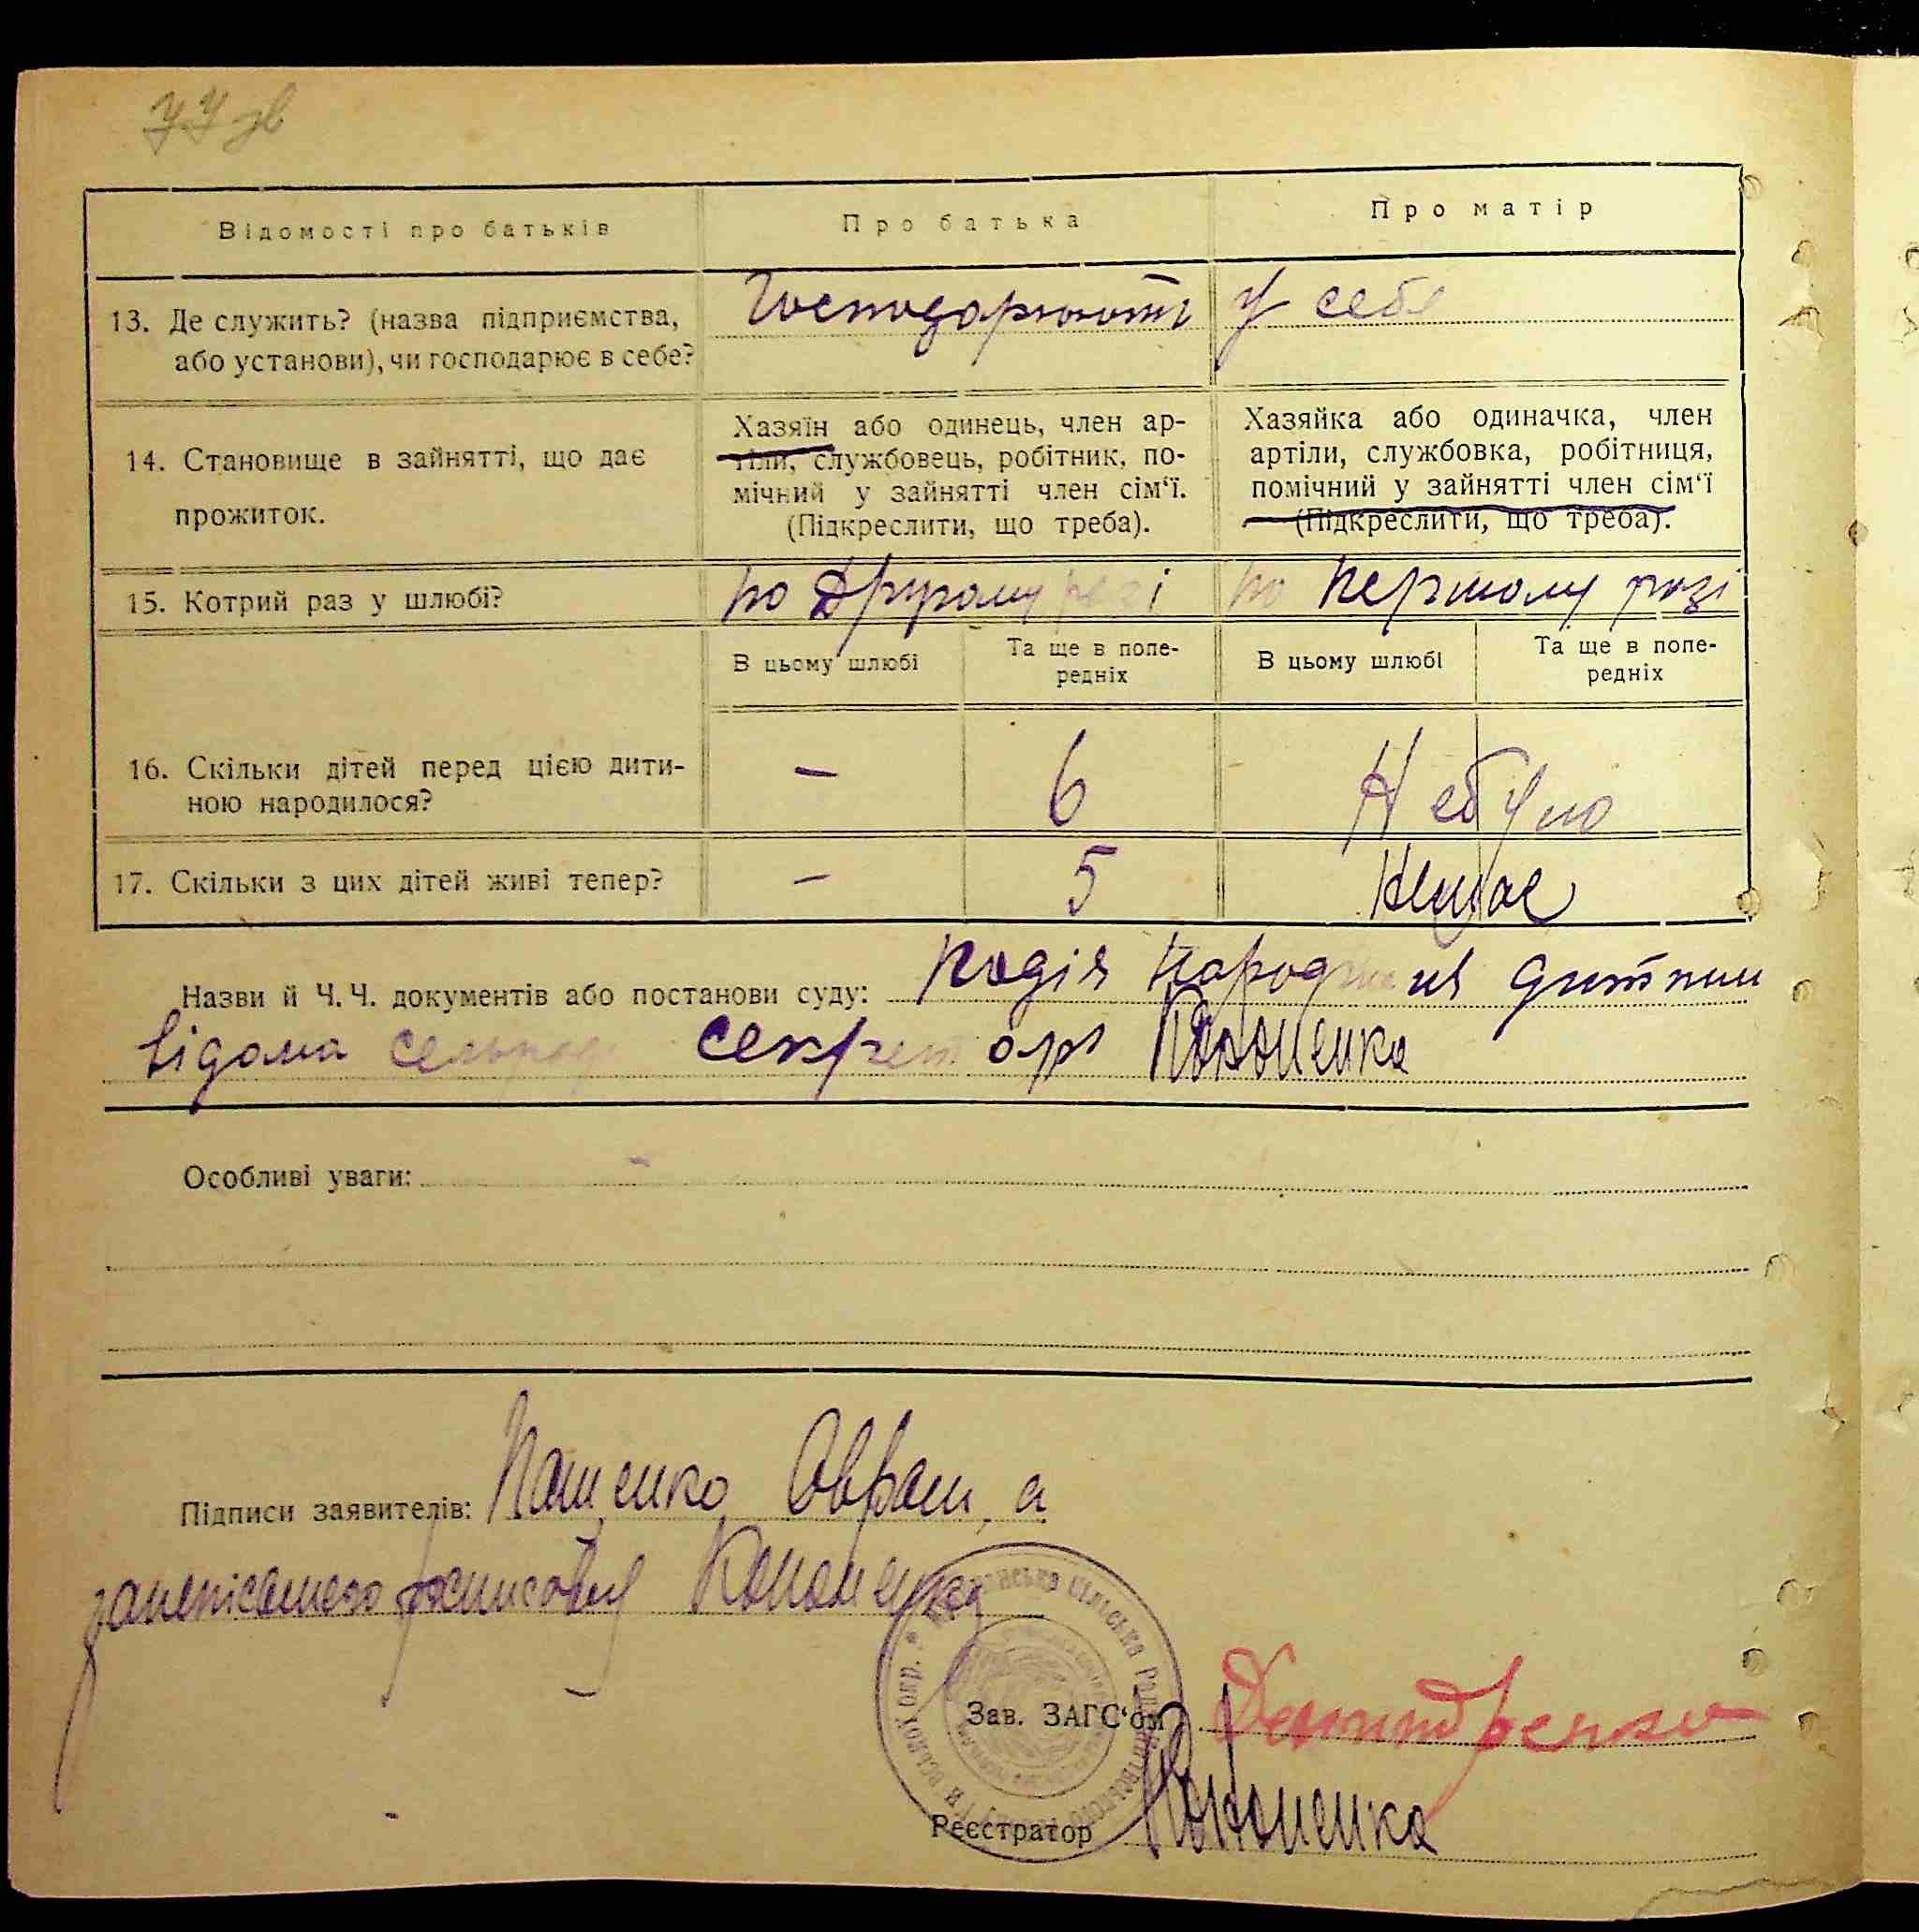 77 зв
Відомості про батьків
Про батька
Про матір
13. Де служить? (назва підприємства,
або установи), чи господарює в себе?
Господарюють
у себе
14. Становище в зайнятті, що дає
прожиток.
Хазяїн або одинець, член ар-
тіли, службовець, робітник, по-
мічний у зайнятті член сім‘ї.
(Підкреслити, що треба).
Хазяйка або одиначка, член
артіли, службовка, робітниця,
помічний у зайнятті член сім‘ї
(Підкреслити, що треба).
15. Котрий раз у шлюбі?
по другому разі
по першому разі
В цьому шлюбі
Та ще в попе-
редніх
В цьому шлюбі
Та ще в попе-
редніх
16. Скільки дітей перед цією дити-
ною народилося?
—
6
Небуло
17. Скільки з цих дітей живі тепер?
—
5
Немае
Назви й Ч. Ч. документів або постанови суду: Подія народження дитини
відома сельраді секретарь Кононенко
Особливі уваги: -
Підписи заявителів: Пащенко Оврам, а
Кононенко
Зав. ЗАГС‘ом
Реєстратор Кононенко